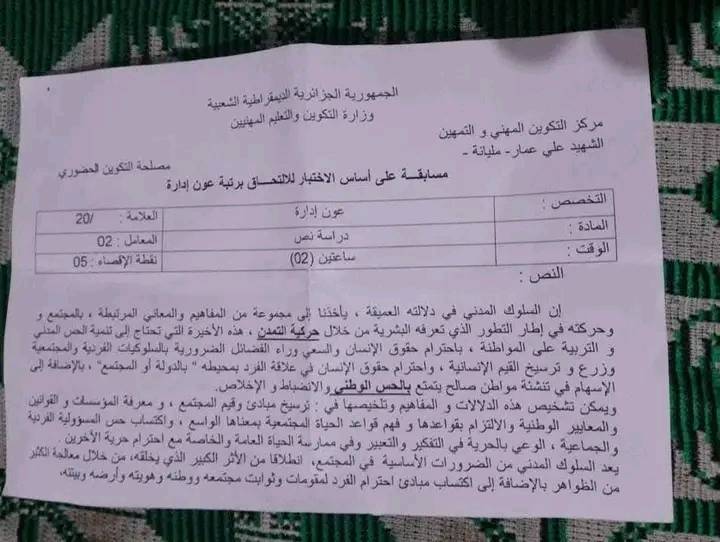 الجمهورية الجزائرية الديمقراطية الشعبية
وزارة التكوين والتعليم المهنيين
مركز التكوين المهني و التمهين
الشهيد علي عمار- مليانة -
مصلحة التكوين الحضوري
مسابقـــة على أساس الاختبار للالتحـــاق برتبة عون إدارة
التخصص : عون إدارة العلامة : /20
المادة : دراسة نص المعامل : 02
الوقت : ساعتين (02) نقطة الإقصاء : 05
النص :
إن السلوك المدني في دلالته العميقة ، يأخذنا إلى مجموعة من المفاهيم والمعاني المرتبطة ، بالمجتمع و
وحركته في إطار التطور الذي تعرفه البشرية من خلال حركية التمدن ، هذه الأخيرة التي تحتاج إلى تنمية الحس المدني
و التربية على المواطنة ، باحترام حقوق الإنسان والسعي وراء الفضائل الضرورية بالسلوكيات الفردية والمجتمعية
وزرع و ترسيخ القيم الإنسانية ، واحترام حقوق الإنسان في علاقة الفرد بمحيطه " بالدولة أو المجتمع" ، بالإضافة إلى
الإسهام في تنشئة مواطن صالح يتمتع بالحس الوطني والانضباط و الإخلاص.
ويمكن تشخيص هذه الدلالات و المفاهيم وتلخيصها في : ترسيخ مبادئ وقيم المجتمع ، و معرفة المؤسسات و القوانين
والمعايير الوطنية والالتزام بقواعدها و فهم قواعد الحياة المجتمعية بمعناها الواسع ، واكتساب حس المسؤولية الفردية
والجماعية ، الوعي بالحرية في التفكير والتعبير وفي ممارسة الحياة العامة والخاصة مع احترام حرية الأخرين .
يعد السلوك المدني من الضرورات الأساسية في المجتمع، انطلاقا من الأثر الكبير الذي يخلقه، من خلال معالجة الكثير
من الظواهر بالإضافة إلى اكتساب مبادئ احترام الفرد لمقومات وثوابت مجتمعه ووطنه وهويته وأرضه وبيئته،